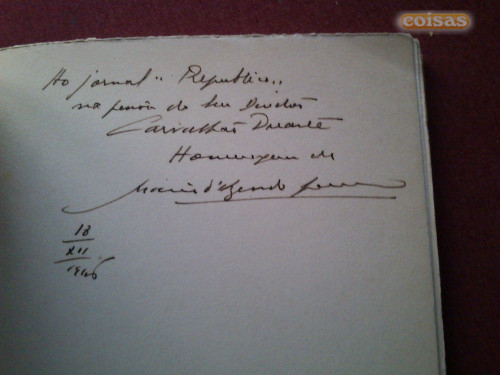 coisas
Ao jornal "República"
na pessoa do seu Director
Carvalhão Duarte
Homenagem de
18
XII
1946